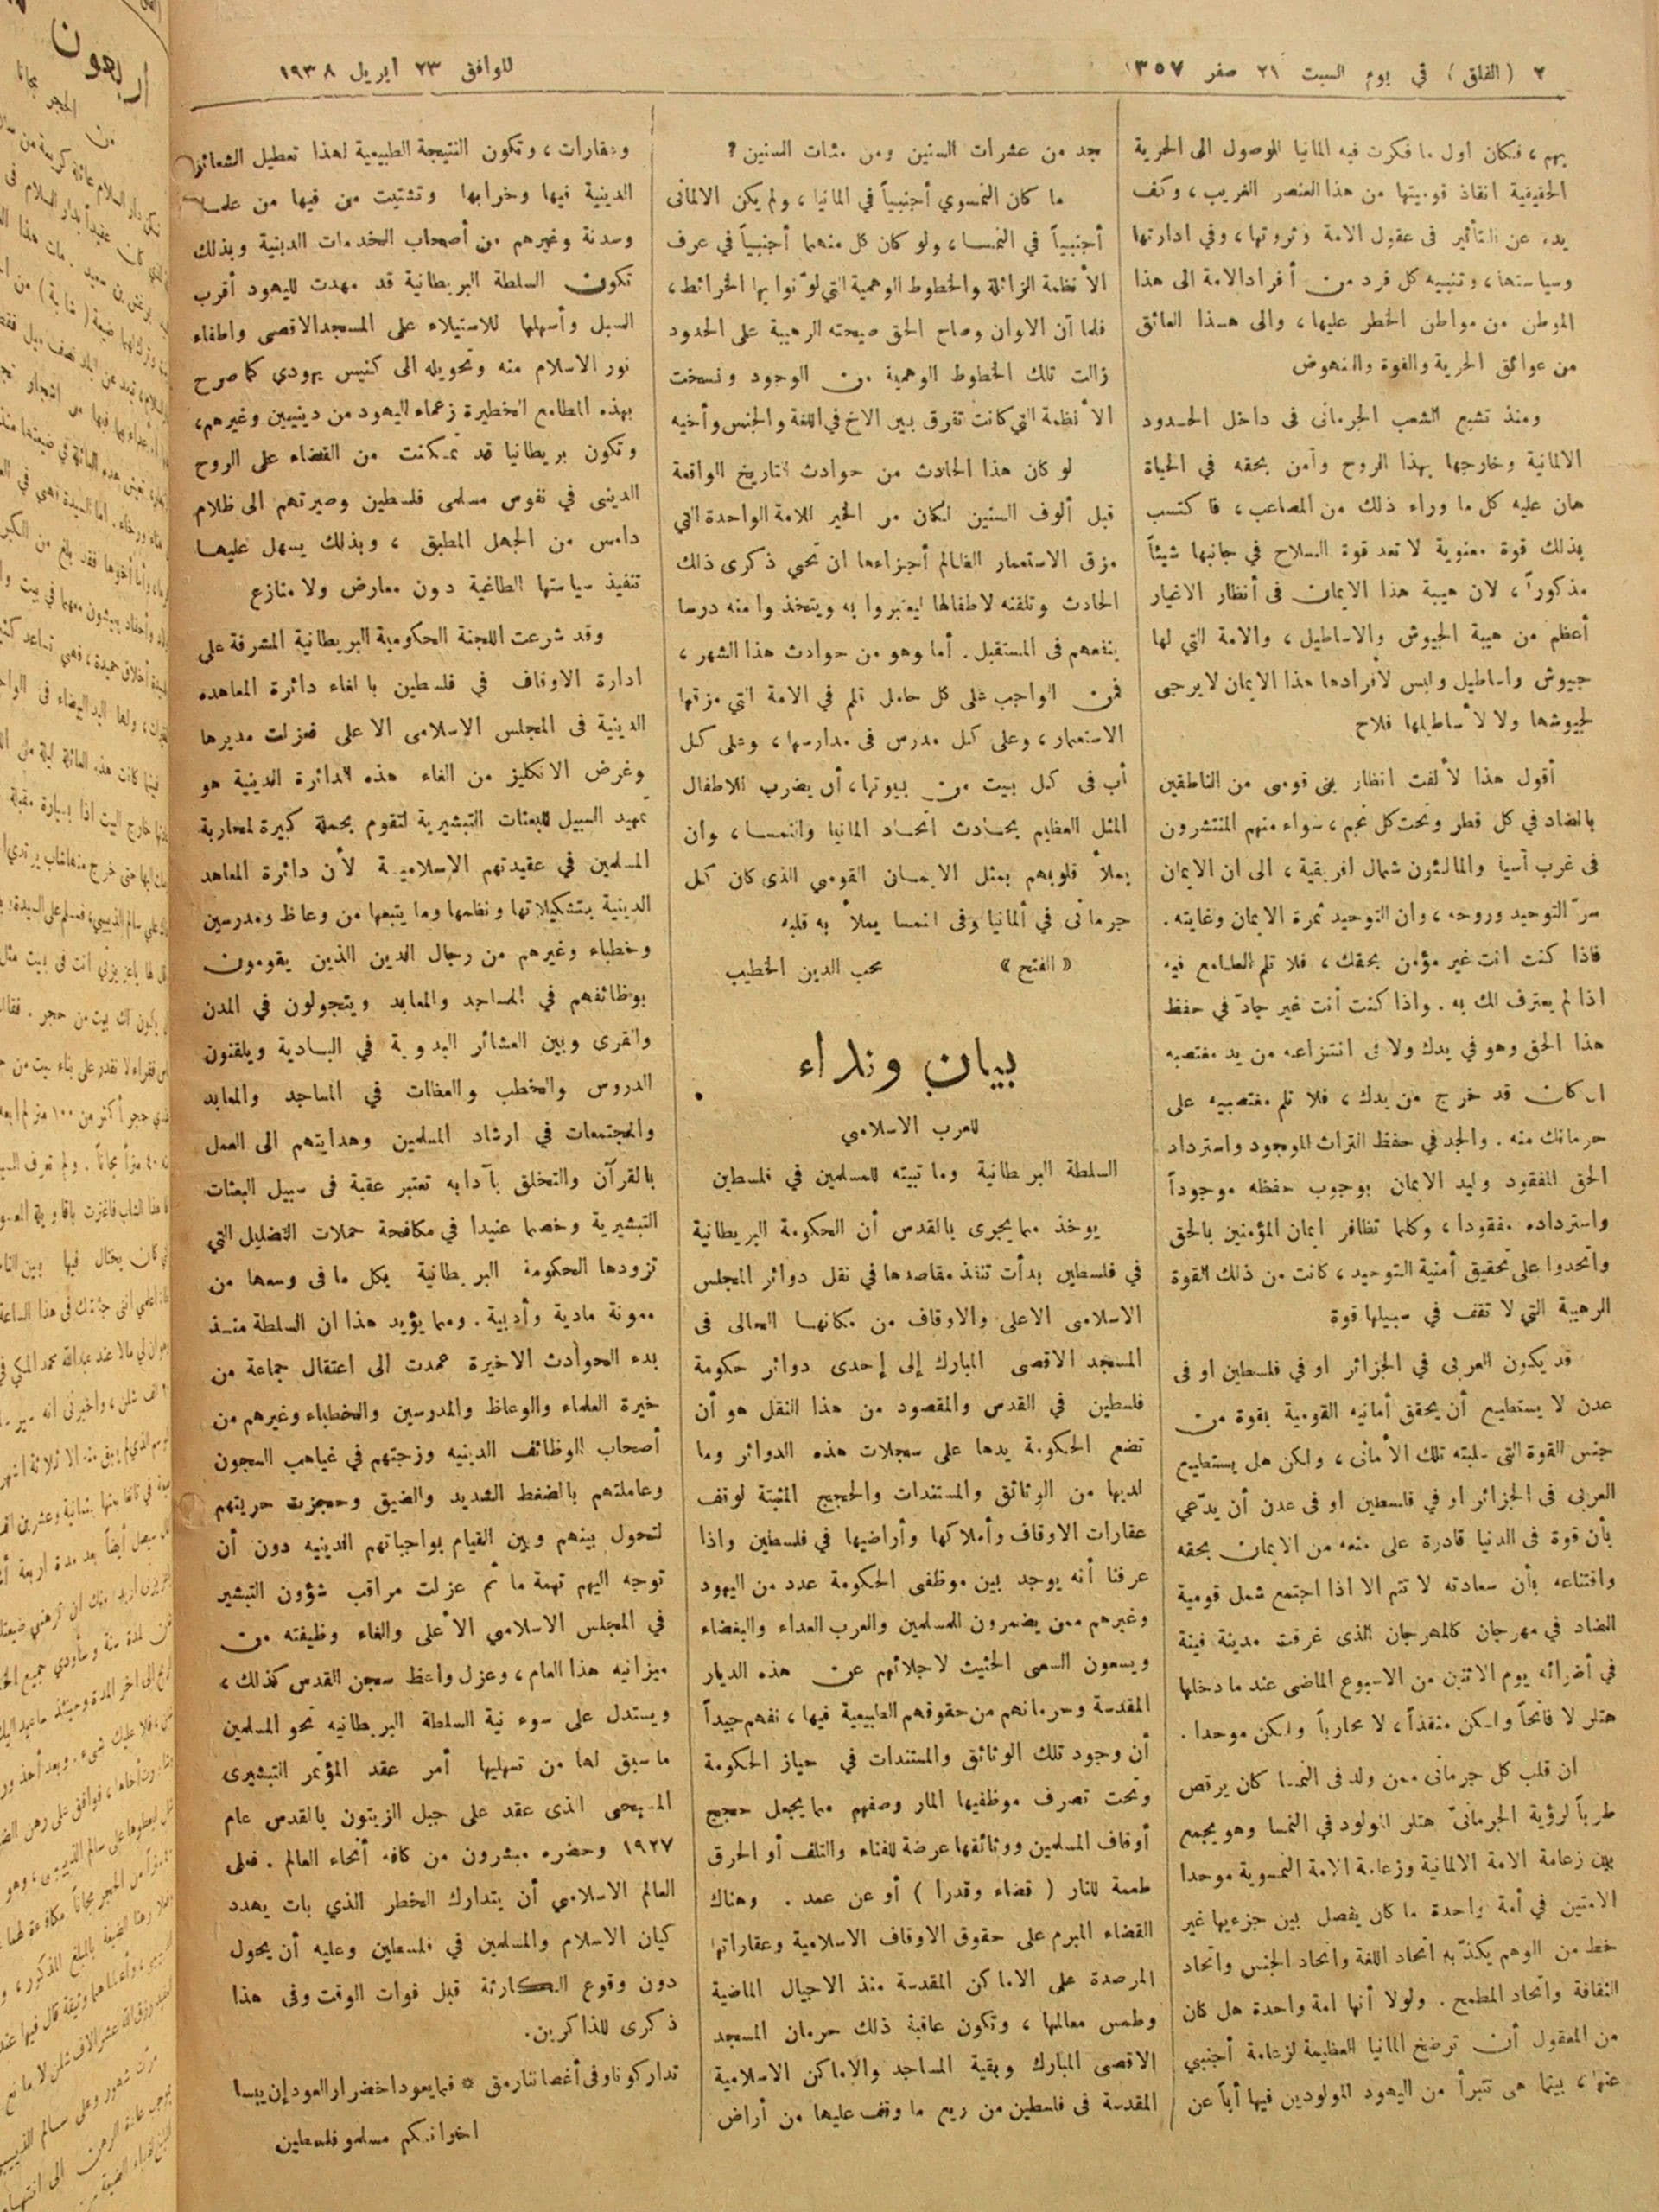 ٢ (الفلق) في يوم السبت ٢١ صفر ١٣٥٧
للوافق ٢٣ ابريل ١٩٣٨
بهم، فكان اول ما فكرت فيه المانيا للوصول الى الحرية
الحقيقية انقاذ قوميتها من هذا العنصر الغريب، وكف
يده عن التأثير فى عقول الامة وثروتها، وفي ادارتها
وسياستها، وتنبيه كل فرد من أفراد الامة الى هذا
الموطن من مواطن الخطر عليها، والى هذا العائق
من عوائق الحرية والقوة والنهوض
ومنذ تشبع الشعب الجرمانى فى داخل الحدود
الالمانية وخارجها بهذا الروح وآمن بحقه في الحياة
هان عليه كل ما وراء ذلك من المصاعب، فاكتسب
بذلك قوة معنوية لا تعد قوة السلاح في جانبها شيئاً
مذكوراً، لان هيبة هذا الايمان فى أنظار الاغيار
أعظم من هيبة الجيوش والاساطيل، والامة التي لها
جيوش واساطيل وليس لأفرادها هذا الايمان لا يرجى
لجيوشها ولا لأساطيلها فلاح
أقول هذا لألفت انظار بنى قومى من الناطقين
بالضاد في كل قطر وتحت كل نجم، سواء منهم المنتشرون
فى غرب آسيا والمالئون شمال افريقية، الى ان الايمان
سرّ التوحيد وروحه، وان التوحيد ثمرة الايمان وغايته.
فاذا كنت انت غير مؤمن بحقك، فلا تلم الطامع فيه
اذا لم يعترف لك به. واذا كنت أنت غير جادّ في حفظ
هذا الحق وهو في يدك ولا فى انتزاعه من يد مغتصبه
ان كان قد خرج من يدك، فلا تلم مغتصبيه على
حرمانك منه. والجد في حفظ التراث الموجود واسترداد
الحق المفقود وليد الايمان بوجوب حفظه موجوداً
واسترداده مفقودا، وكلما تظافر ايمان المؤمنين بالحق
واتحدوا على تحقيق أمنية التوحيد، كانت من ذلك القوة
الرهيبة التي لا تقف في سبيلها قوة
قد يكون العربى في الجزائر او في فلسطين او فى
عدن لا يستطيع أن يحقق أمانيه القومية بقوة من
جنس القوة التى سلبته تلك الأمانى، ولكن هل يستطيع
العربى فى الجزائر او في فلسطين او فى عدن أن يدّعي
بأن قوة فى الدنيا قادرة على منعه من الايمان بحقه
واقتناعه بأن سعادته لا تتم الا اذا اجتمع شمل قومية
الضاد في مهرجان كالمهرجان الذى غرقت مدينة فينة
في أضوائه يوم الاثنين من الاسبوع الماضى عند ما دخلها
هتلر لا فاتحاً ولكن منقذاً، لا محارباً ولكن موحدا.
ان قلب كل جرمانى ممن ولد فى النمسا كان يرقص
طرباً لرؤية الجرمانىّ هتلر المولود في النمسا وهو يجمع
بين زعامة الامة الالمانية وزعامة الامة النمسوية موحدا
الامتين في أمة واحدة ما كان يفصل بين جزءيها غير
خط من الوهم يكذّبه اتحاد اللغة واتحاد الجنس واتحاد
الثقافة واتحاد المطمح. ولولا أنها امة واحدة هل كان
من المعقول أن ترضخ المانيا العظيمة لزعامة أجنبي
عنها، بينما هى تتبرأ من اليهود المولودين فيها أباً عن
جد من عشرات السنين ومن مئات السنين؟
ما كان النمسوي أجنبياً في المانيا، ولم يكن الالمانى
أجنبياً في النمسا، ولو كان كل منهما أجنبياً في عرف
الأنظمة الزائلة والخطوط الوهمية التي لوّنوا بها الخرائط،
فلما آن الاوان وصاح الحق صيحته الرهيبة على الحدود
زالت تلك الخطوط الوهمية من الوجود ونسخت
الأنظمة التي كانت تفرق بين الاخ في اللغة والجنس وأخيه
لو كان هذا الحادث من حوادث التاريخ الواقعة
قبل ألوف السنين لكان من الخير للامة الواحدة التي
مزق الاستعمار الظالم أجزاءها ان تحيي ذكرى ذلك
الحادث وتلقنه لاطفالها ليعتبروا به ويتخذوا منه درسا
ينفعهم فى المستقبل. أما وهو من حوادث هذا الشهر،
فمن الواجب على كل حامل قلم في الامة التي مزقها
الاستعمار، وعلى كل مدرس فى مدارسها، وعلى كل
أب فى كل بيت من بيوتها، أن يضرب للاطفال
المثل العظيم بحادث اتحاد المانيا والنمسا، وان
يملأ قلوبهم بمثل الايمان القومي الذى كان كل
جرمانى في ألمانيا وفى النمسا يملأ به قلبه
«الفتح» محب الدين الخطيب
بيان ونداء
للعرب الاسلامي
السلطة البريطانية وما تبيته للمسلمين في فلسطين
يوخذ مما يجرى بالقدس أن الحكومة البريطانية
في فلسطين بدأت تنفذ مقاصدها في نقل دوائر المجلس
الاسلامى الاعلى والاوقاف من مكانها الحالى فى
المسجد الاقصى المبارك إلى إحدى دوائر حكومة
فلسطين في القدس والمقصود من هذا النقل هو أن
تضع الحكومة يدها على سجلات هذه الدوائر وما
لديها من الوثائق والمستندات والحجج المثبتة لوقف
عقارات الاوقاف وأملاكها وأراضيها في فلسطين واذا
عرفنا أنه يوجد بين موظفى الحكومة عدد من اليهود
وغيرهم ممن يضمرون للمسلمين والعرب العداء والبغضاء
ويسعون السعى الحثيث لاجلائهم عن هذه الديار
المقدسة وحرمانهم من حقوقهم الطبيعية فيها، نفهم جيداً
أن وجود تلك الوثائق والمستندات في حياز الحكومة
وتحت تصرف موظفيها المار وصفهم مما يجعل حجج
أوقاف المسلمين ووثائقها عرضة للفناء والتلف أو الحرق
طعمة للنار (قضاء وقدرا) أو عن عمد. وهناك
القضاء المبرم على حقوق الاوقاف الاسلامية وعقاراتها
المرصدة على الاماكن المقدسة منذ الاجيال الماضية
وطمس معالمها، وتكون عاقبة ذلك حرمان المسجد
الاقصى المبارك وبقية المساجد والاماكن الاسلامية
المقدسة فى فلسطين من ريع ما وقف عليها من أراض
وعقارات، وتكون النتيجة الطبيعية لهذا تعطيل الشعائر
الدينية فيها وخرابها وتشتيت من فيها من علماء
وسدنة وغيرهم من أصحاب الخدمات الدينية وبذلك
تكون السلطة البريطانية قد مهدت لليهود أقرب
السبل وأسهلها للاستيلاء على المسجد الاقصى واطفاء
نور الاسلام منه وتحويله الى كنيس يهودي كما صرح
بهذه المطامع الخطيرة زعماء اليهود من دينيين وغيرهم،
وتكون بريطانيا قد تمكنت من القضاء على الروح
الدينى في نفوس مسلمى فلسطين وصيرتهم الى ظلام
دامس من الجهل المطبق، وبذلك يسهل عليها
تنفيذ سياستها الطاغية دون معارض ولا منازع
وقد شرعت اللجنة الحكومية البريطانية المشرفة على
ادارة الاوقاف في فلسطين بالغاء دائرة المعاهده
الدينية فى المجلس الاسلامى الاعلى فعزلت مديرها
وغرض الانكليز من الغاء هذه الدائرة الدينية هو
تمهيد السبيل للبعثات التبشيرية لتقوم بحملة كبيرة لمحاربة
المسلمين في عقيدتهم الاسلامية لأن دائرة المعاهد
الدينية بتشكيلاتها ونظمها وما يتبعها من وعاظ ومدرسين
وخطباء وغيرهم من رجال الدين الذين يقومون
بوظائفهم في المساجد والمعابد ويتجولون في المدن
والقرى وبين العشائر البدوية في البادية ويلقنون
الدروس والخطب والعظات في المساجد والمعابد
والمجتمعات في ارشاد المسلمين وهدايتهم الى العمل
بالقرآن والتخلق بآدابه تعتبر عقبة فى سبيل البعثات
التبشيرية وخصما عنيدا في مكافحة حملات التضليل التي
تزودها الحكومة البريطانية بكل ما فى وسعها من
معونة مادية وأدبية. ومما يؤيد هذا ان السلطة منذ
بدء الحوادث الاخيرة عمدت الى اعتقال جماعة من
خيرة العلماء والوعاظ والمدرسين والخطباء وغيرهم من
أصحاب الوظائف الدينيه وزجتهم في غياهب السجون
وعاملتهم بالضغط الشديد والضيق وحجزت حريتهم
لتحول بينهم وبين القيام بواجباتهم الدينيه دون أن
توجه اليهم تهمة ما ثم عزلت مراقب شؤون التبشير
في المجلس الاسلامي الأعلى والغاء وظيفته من
ميزانيه هذا العام، وعزل واعظ سجن القدس كذلك،
ويستدل على سوء نية السلطة البريطانيه نحو المسلمين
ما سبق لها من تسهيلها أمر عقد المؤتمر التبشيرى
المسيحى الذى عقد على جبل الزيتون بالقدس عام
١٩٢٧ وحضره مبشرون من كافة أنحاء العالم. فعلى
العالم الاسلامي أن يتدارك الخطر الذي بات يهدد
كيان الاسلام والمسلمين في فلسطين وعليه أن يحول
دون وقوع الكارثة قبل فوات الوقت وفى هذا
ذكرى للذاكرين.
تداركونا وفى أغصاننا رمق * فما يعود اخضرار العود إن يبسا
اخوانكم مسلمو فلسطين